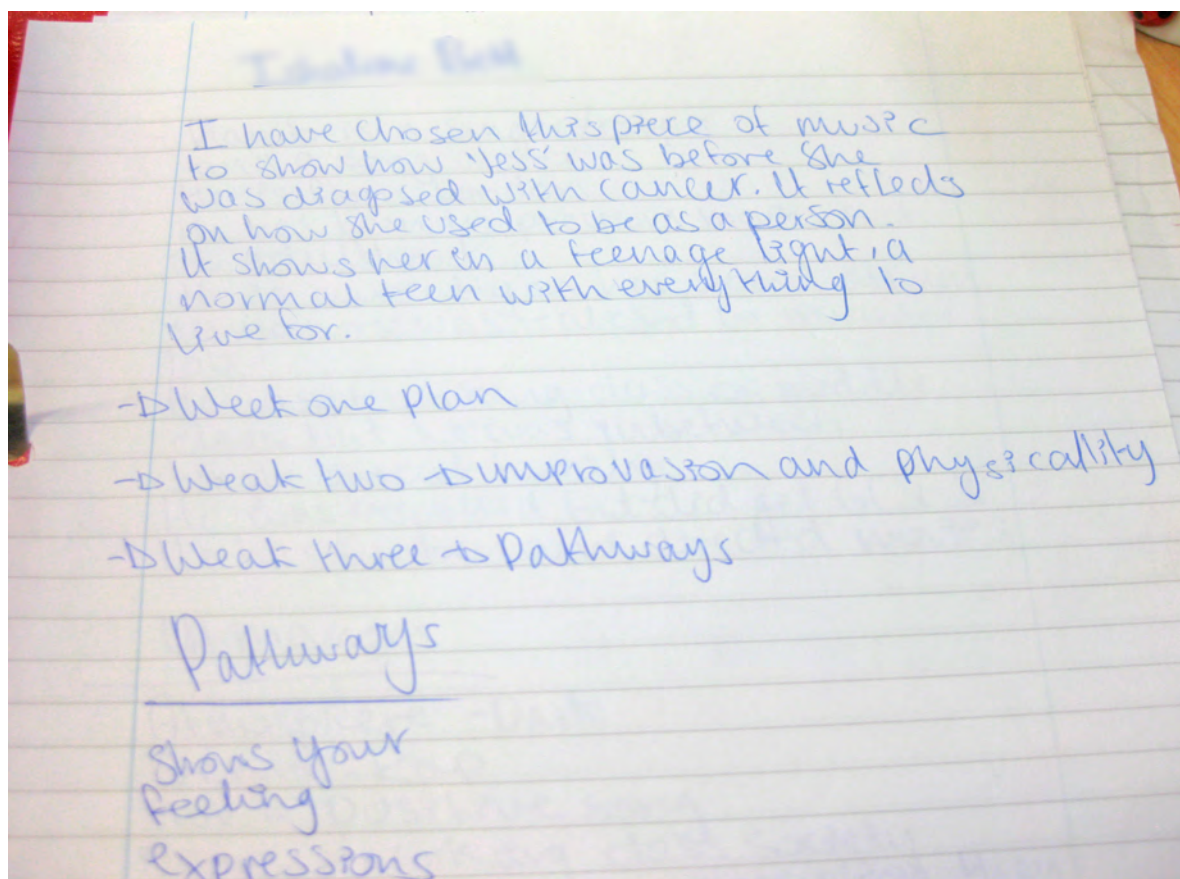 I have chosen this piece of music
to show how 'Jess' was before she
was diagosed with cancer. It reflects
on how she used to be as a person.
It shows her in a teenage light, a
normal teen with everything to
live for.
→ Week one plan
→ Weak two → improvasion and physicallity
→ Weak three → Pathways
Pathways
Shows your
feeling
expressions